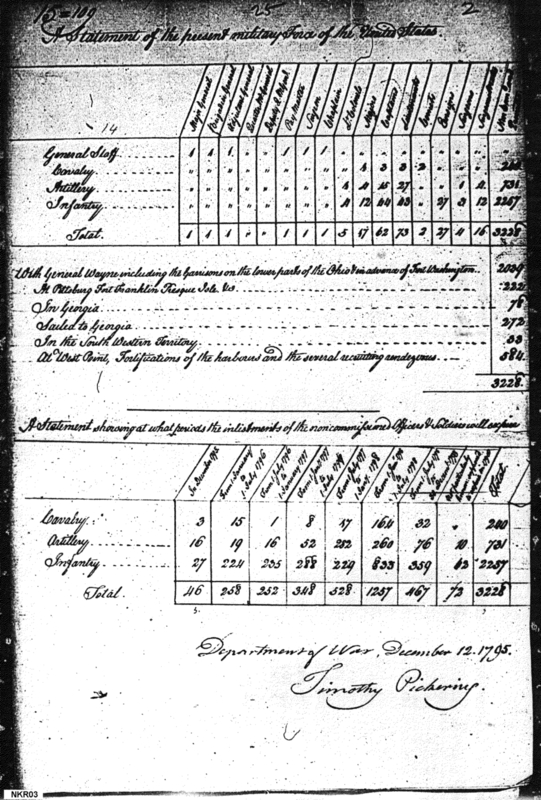 15=109 25 2
A Statement of the present military Force of the United States.
14 Major General Brigadier General Adjutant General Pay Master Surgeon Chaplain Majors Captains Lieutenants Cornets Ensigns Surgeons
General Staff 1 1 1 " " 1 1 1 " " " " " " " " "
Cavalry " " " " " " " " " 1 3 3 2 " " " 240
Artillery " " " " " " " " 1 4 15 27 " " 1 4 731
Infantry " " " " " " " " 4 12 44 43 " 27 3 12 2257
Total 1 1 1 " " 1 1 1 5 17 62 73 2 27 4 16 3228
With General Wayne including the Garrisons on the lower parts of the Ohio & in advance of Fort Washington 2039
At Pittsburg Fort Franklin Presque Isle &c 222
In Georgia 78
Sailed to Georgia 272
In the South Western Territory 33
At West Point, Fortifications of the harbours and the several recruiting rendezvous. 584
3228
A Statement showing at what periods the inlistments of the noncommissioned Officers & Soldiers will expire
In December 1795 From 1 January to 1 July 1796 From July 1796 to 1 January 1797 From Jany 1797 to 1 July 1797 From July 1797 to 1 Jany 1798 From 1 Jany 1798 to 1 July 1798 Total
Cavalry 3 15 1 8 17 164 32 " 240
Artillery 16 19 16 52 282 260 76 10 731
Infantry 27 224 235 288 229 833 359 62 2257
Total 46 258 252 348 528 1257 467 72 3228
Department of War, December 12. 1795.
Timothy Pickering.
NKR03